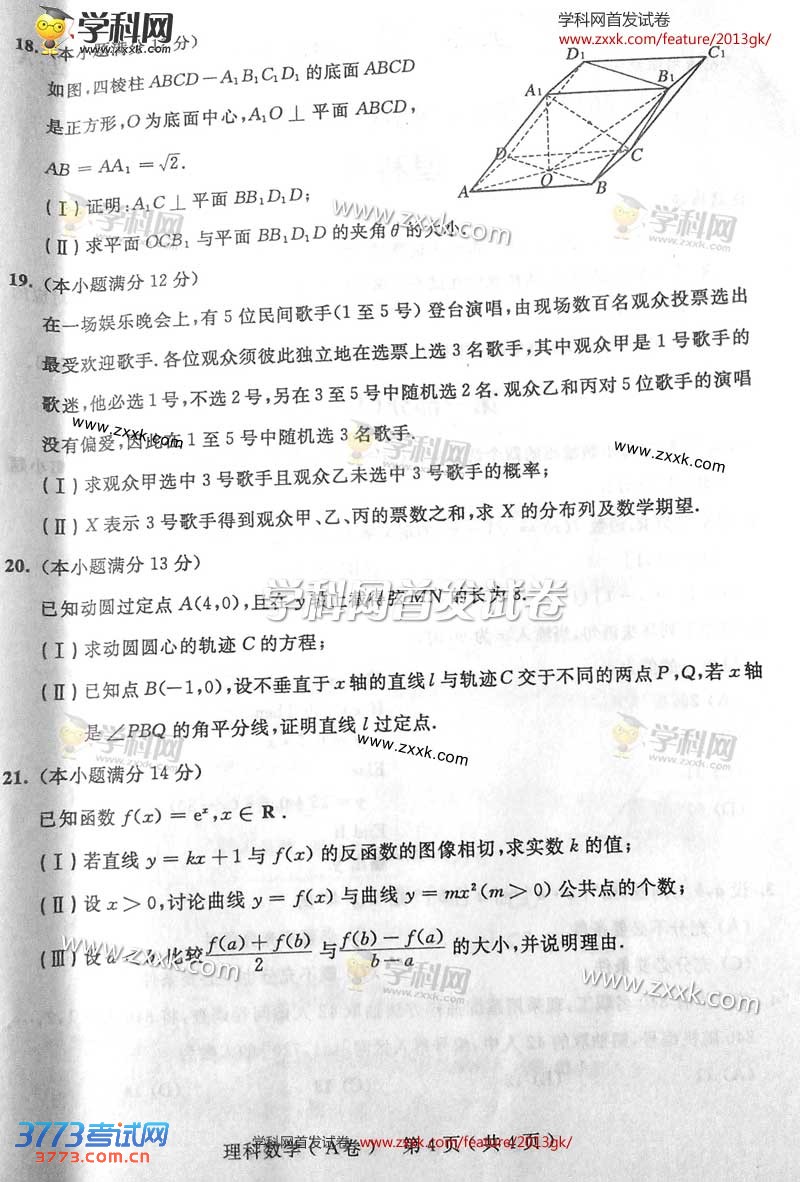 学科网首发试卷
www.zxxk.com/feature/2013gk/
学科网
www.zxxk.com
18. (本小题满分12分)
如图,四棱柱 ABCD-A₁B₁C₁D₁ 的底面 ABCD
是正方形,O为底面中心,A₁O⊥平面ABCD,
AB=AA₁=√2.
D₁
C₁
A₁
B₁
D
C
O
A
B
(Ⅰ)证明:A₁C⊥平面BB₁D₁D;
(Ⅱ)求平面OCB₁与平面BB₁D₁D的夹角θ的大小.
www.zxxk.com
学科网
www.zxxk.com
19. (本小题满分12分)
在一场娱乐晚会上,有5位民间歌手(1至5号)登台演唱,由现场数百名观众投票选出
最受欢迎歌手.各位观众须彼此独立地在选票上选3名歌手,其中观众甲是1号歌手的
歌迷,他必选1号,不选2号,另在3至5号中随机选2名.观众乙和丙对5位歌手的演唱
没有偏爱,因此在1至5号中随机选3名歌手.
www.zxxk.com
学科网
www.zxxk.com
www.zxxk.com
(Ⅰ)求观众甲选中3号歌手且观众乙未选中3号歌手的概率;
(Ⅱ)X表示3号歌手得到观众甲、乙、丙的票数之和,求X的分布列及数学期望.
20. (本小题满分13分)
学科网首发试卷
已知动圆过定点A(4,0),且在y轴上截得的MN的长为8.
(Ⅰ)求动圆圆心的轨迹C的方程;
(Ⅱ)已知点B(-1,0),设不垂直于x轴的直线l与轨迹C交于不同的两点P,Q,若x轴
是∠PBQ的角平分线,证明直线l过定点.
学科网
www.zxxk.com
www.zxxk.com
学科网
www.zxxk.com
21. (本小题满分14分)
已知函数f(x)=eˣ,x∈R.
(Ⅰ)若直线y=kx+1与f(x)的反函数的图像相切,求实数k的值;
(Ⅱ)设x>0,讨论曲线y=f(x)与曲线y=mx²(m>0)公共点的个数;
(Ⅲ)设a<b,比较 (f(a)+f(b))/2 与 (f(b)-f(a))/(b-a) 的大小,并说明理由.
www.zxxk.com
学科网
www.zxxk.com
www.zxxk.com
3773考试网
www.3773.com.cn
学科网首发试卷 www.zxxk.com/feature/2013gk/
理科数学(A卷) 第4页(共4页)